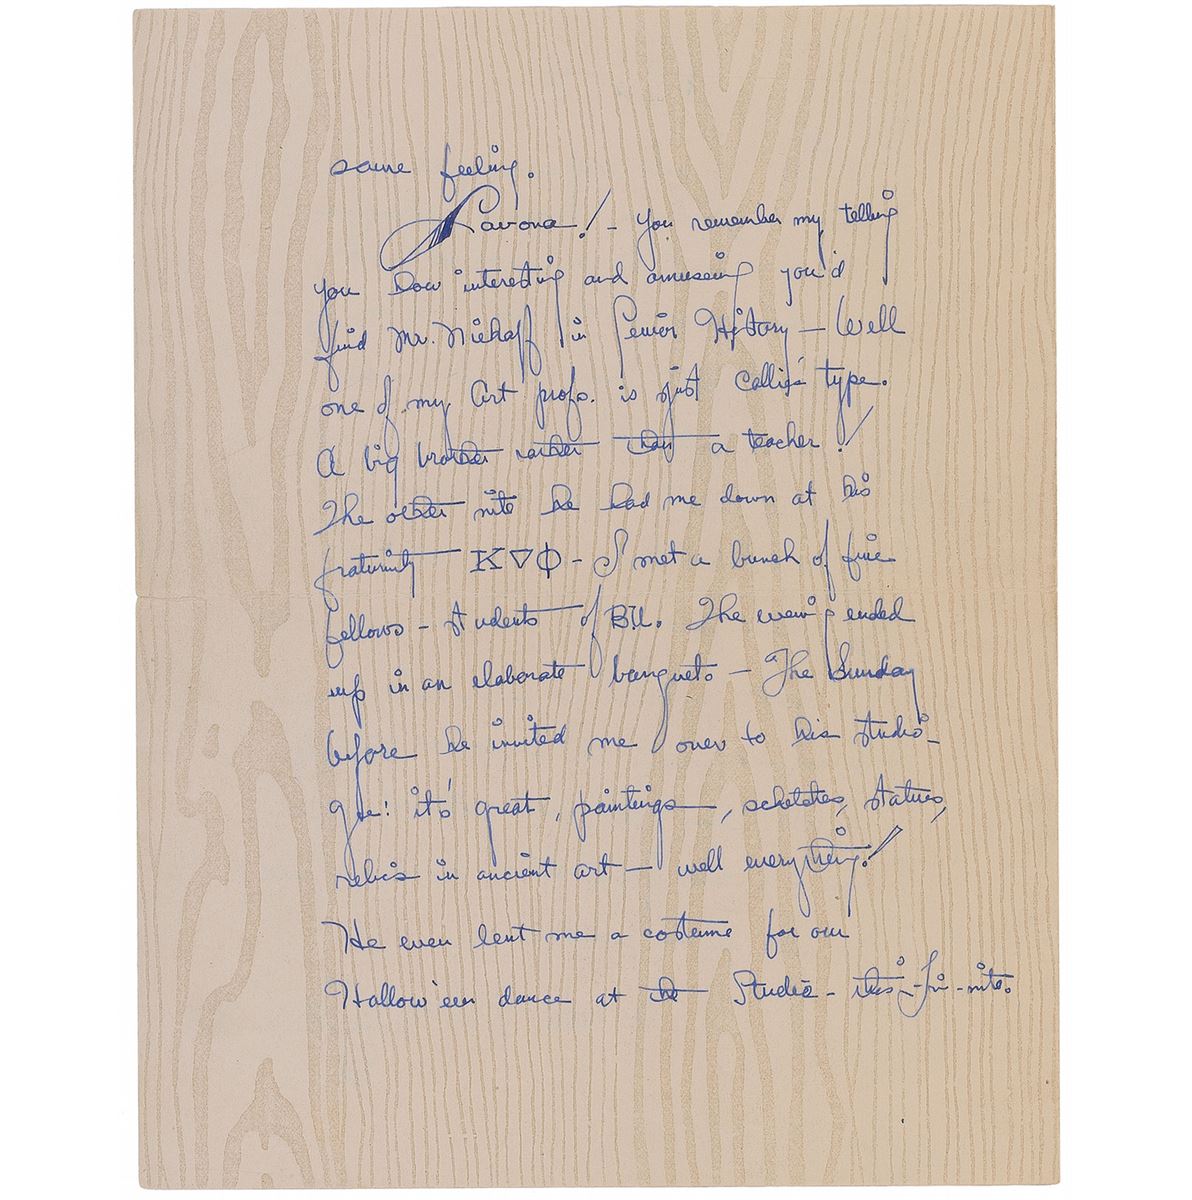 same feeling.
Lavona! - You remember my telling
you how interesting and amuseing you'd
find Mr. Niehoff in Senior History — Well
one of my Art profs. is just Callie's type.
A big brother rather than a teacher!
The other nite he had me down at his
fraturnity K∇Φ - I met a bunch of fine
fellows - students of B.U. The evening ended
up in an elaborate banquets — The Sunday
before he invited me over to his studio -
Gee! it's great, paintings, schetches, statues,
relics in ancient art — well everything!
He even lent me a costume for our
Hallow'een dance at the Studio - this - Fri - nite.